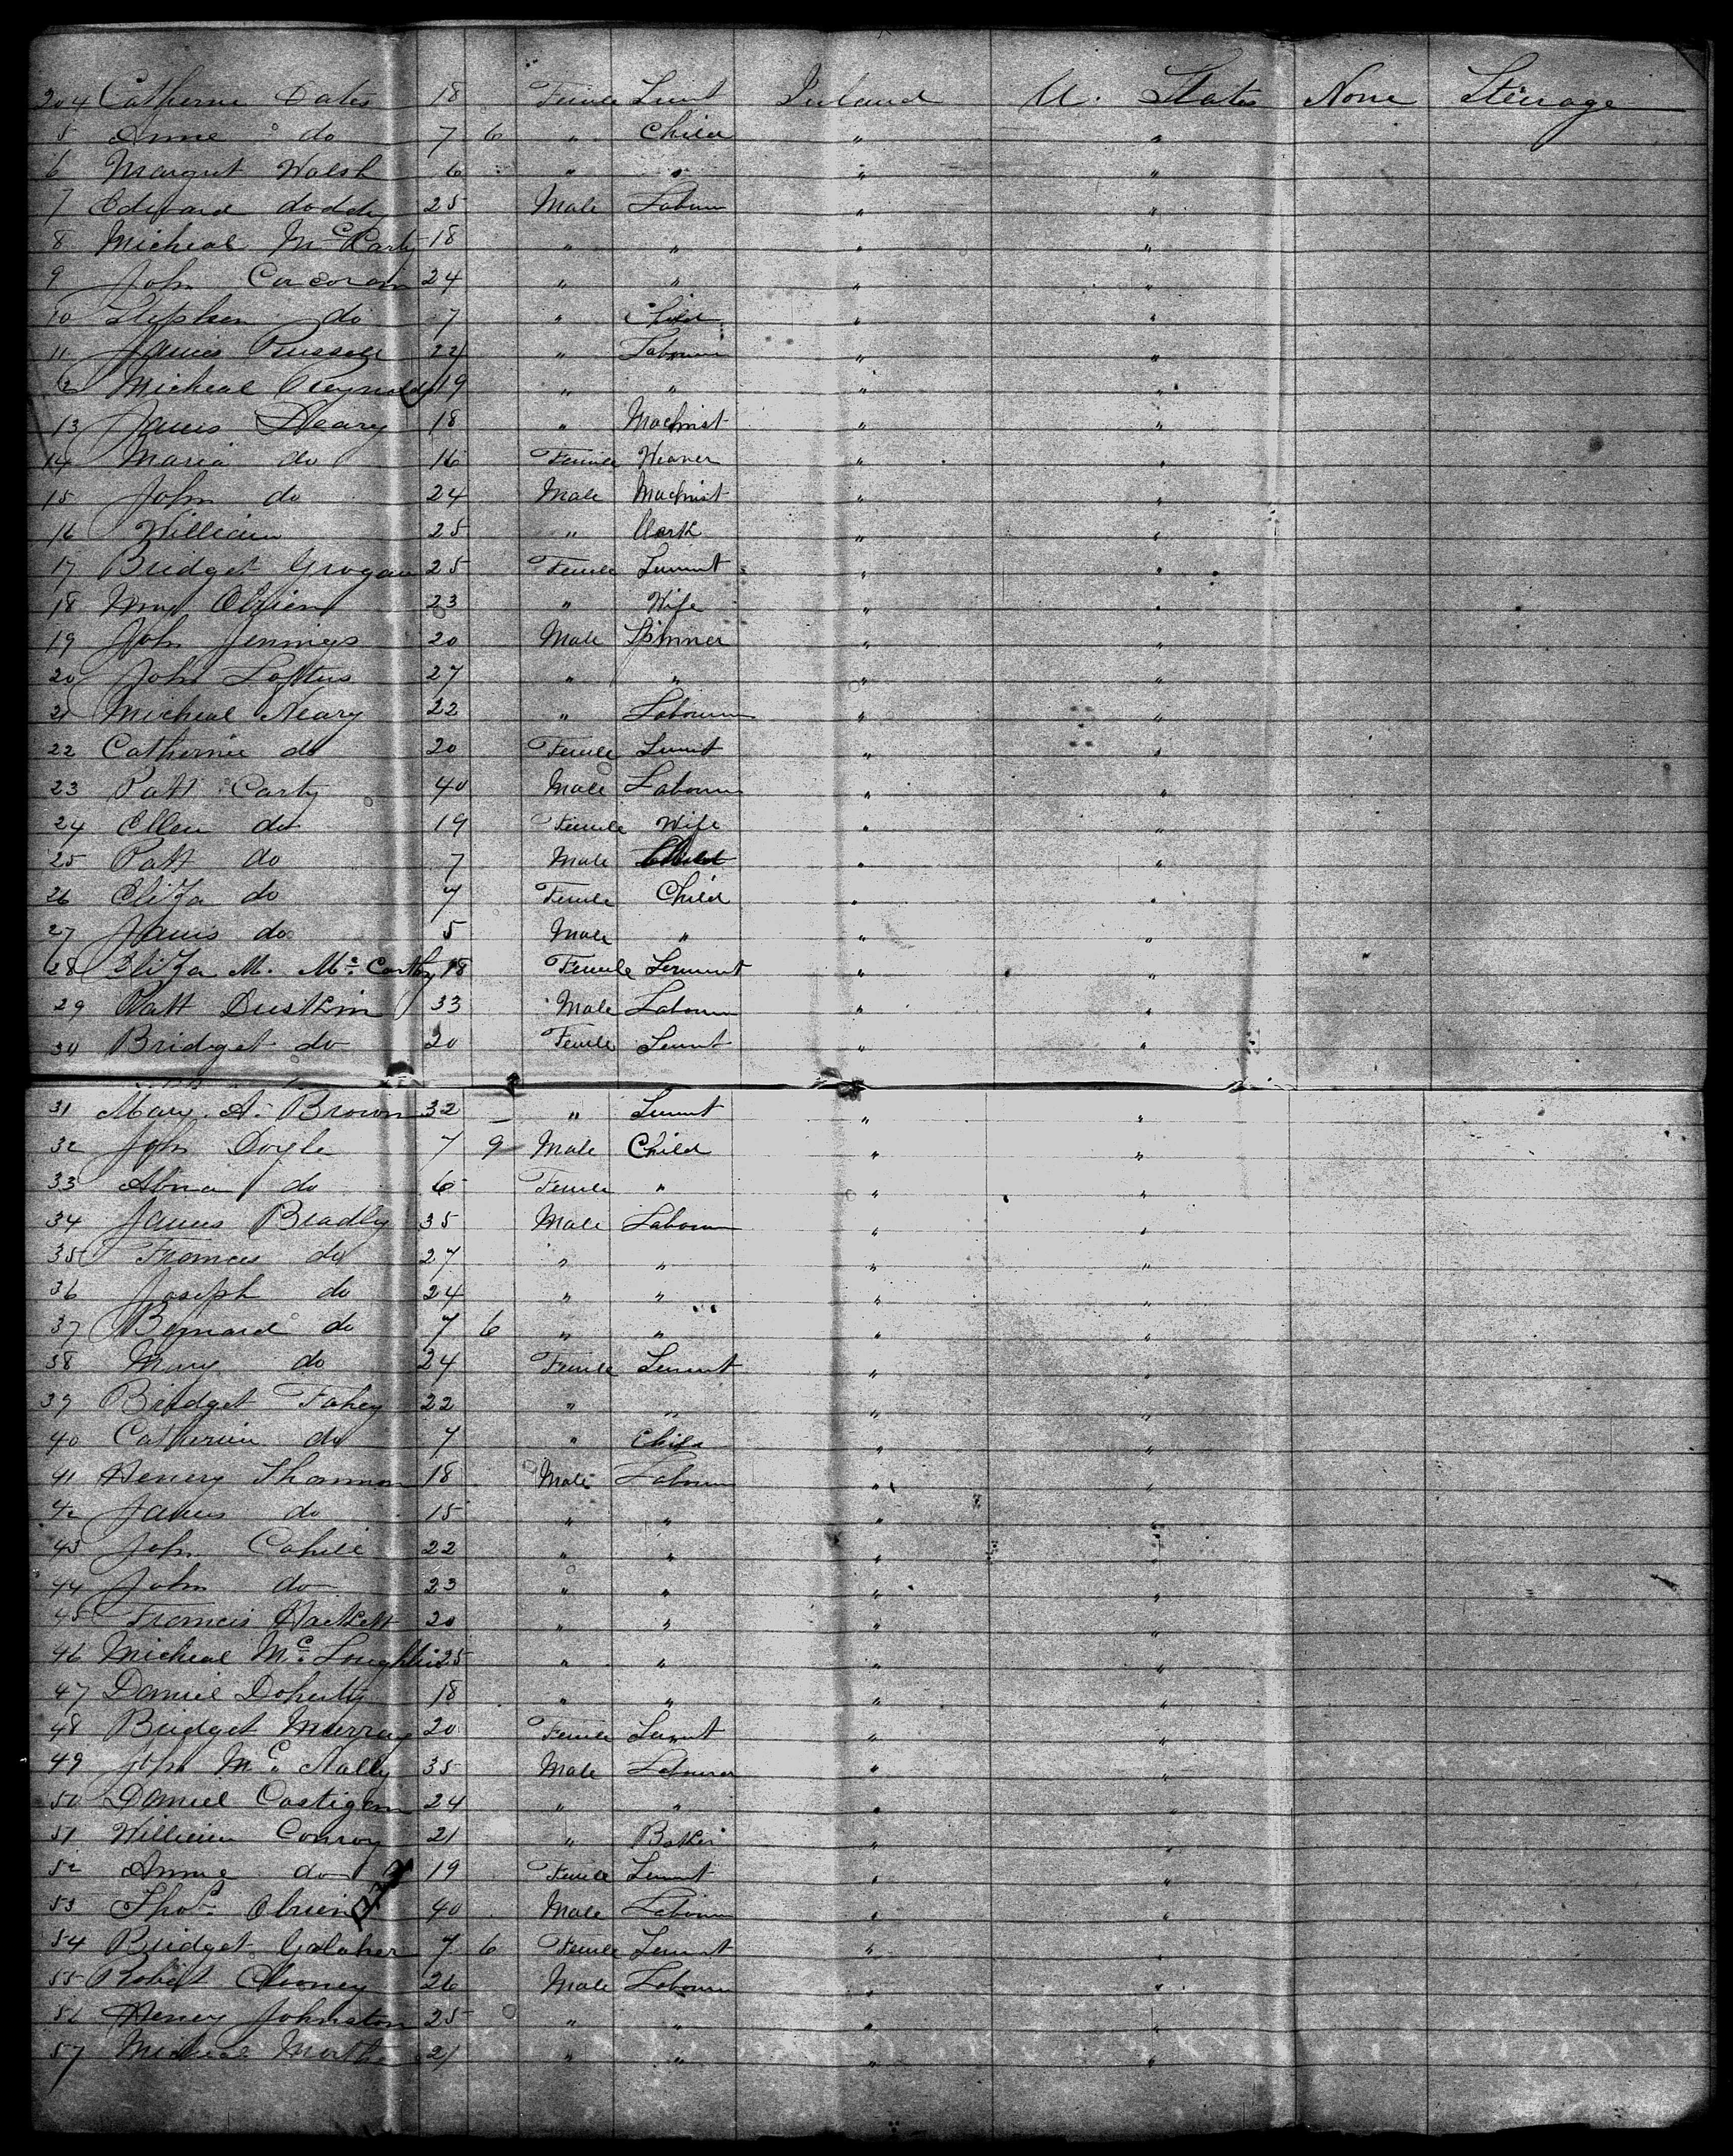 204 Catherine Oates 18 Female Servt Ireland U. States None Steerage
5 Anne do 7 6 " Child " "
6 Margret Walsh 6 " " " "
7 Edward doddy 25 Male Labourer " "
8 Micheal McCarty 18 " " " "
9 John Corcoran 24 " " " "
10 Stephen do 7 " Child " "
11 James Russell 22 " Labourer " "
12 Micheal Reynolds 19 " " " "
13 James Neary 18 " Machnist " "
14 Maria do 16 Female Weaver " "
15 John do 24 Male Machnist " "
16 William 25 " Clark " "
17 Bridget Grogan 25 Female Servnt " "
18 Obrien 23 " Wife " "
19 John Jennings 20 Male Spinner " "
20 John Loftus 27 " " " "
21 Micheal Neary 22 " Labourer " "
22 Catherine do 20 Female Servnt " "
23 Patt Carty 40 Male Labourer " "
24 Ellen do 19 Female Wife " "
25 Patt do 7 Male Child " "
26 Eliza do 7 Female Child " "
27 James do 5 Male " " "
28 Eliza M. Mc Carthy 18 Female Servunt " "
29 Patt Duskin 33 Male Labourer " "
30 Bridget do 20 Female Servnt " "
31 Mary A. Brown 32 " Servnt " "
32 John Doyle 7 9 Male Child " "
33 do 6 Female " " "
34 James Bradly 35 Male Labourer " "
35 Francis do 27 " " " "
36 Joseph do 24 " " " "
37 Bernard do 7 6 " " " "
38 Mary do 24 Female Servnt " "
39 Bridget Fahey 22 " " " "
40 Catherine do 7 " Child " "
41 Henery 18 Male Labourer " "
42 James do 15 " " " "
43 John Cahill 22 " " " "
44 John do 23 " " " "
45 Francis Hackett 20 " " " "
46 Micheal Mc Loughlin 25 " " " "
47 Daniel Doherty 18 " " " "
48 Bridget Murray 20 Female Servnt " "
49 John Mc Nally 35 Male Labourer " "
50 Daniel Costigan 24 " " " "
51 William Conroy 21 " Baker " "
52 Anne do 19 Female Servnt " "
53 Thos. Obrien 40 Male Labourer " "
54 Bridget Galaher 7 6 Female Servnt " "
55 Robert 26 Male Labourer " "
56 Henry Johnston 25 " " " "
57 Micheal 21 " " " "